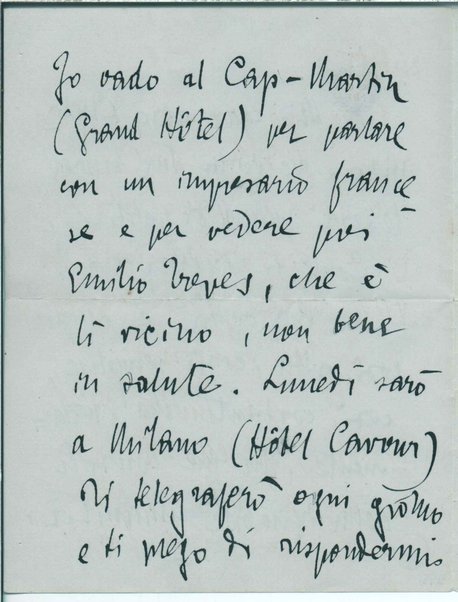 Io vado al Cap-Martin
(Grand Hôtel) per parlare
con un impresario france-
se e per vedere poi
Emilio Treves, che è
lì vicino, non bene
in salute. Lunedì sarò
a Milano (Hôtel Cavour)
Ti telegraferò ogni giorno
e ti prego di rispondermi.